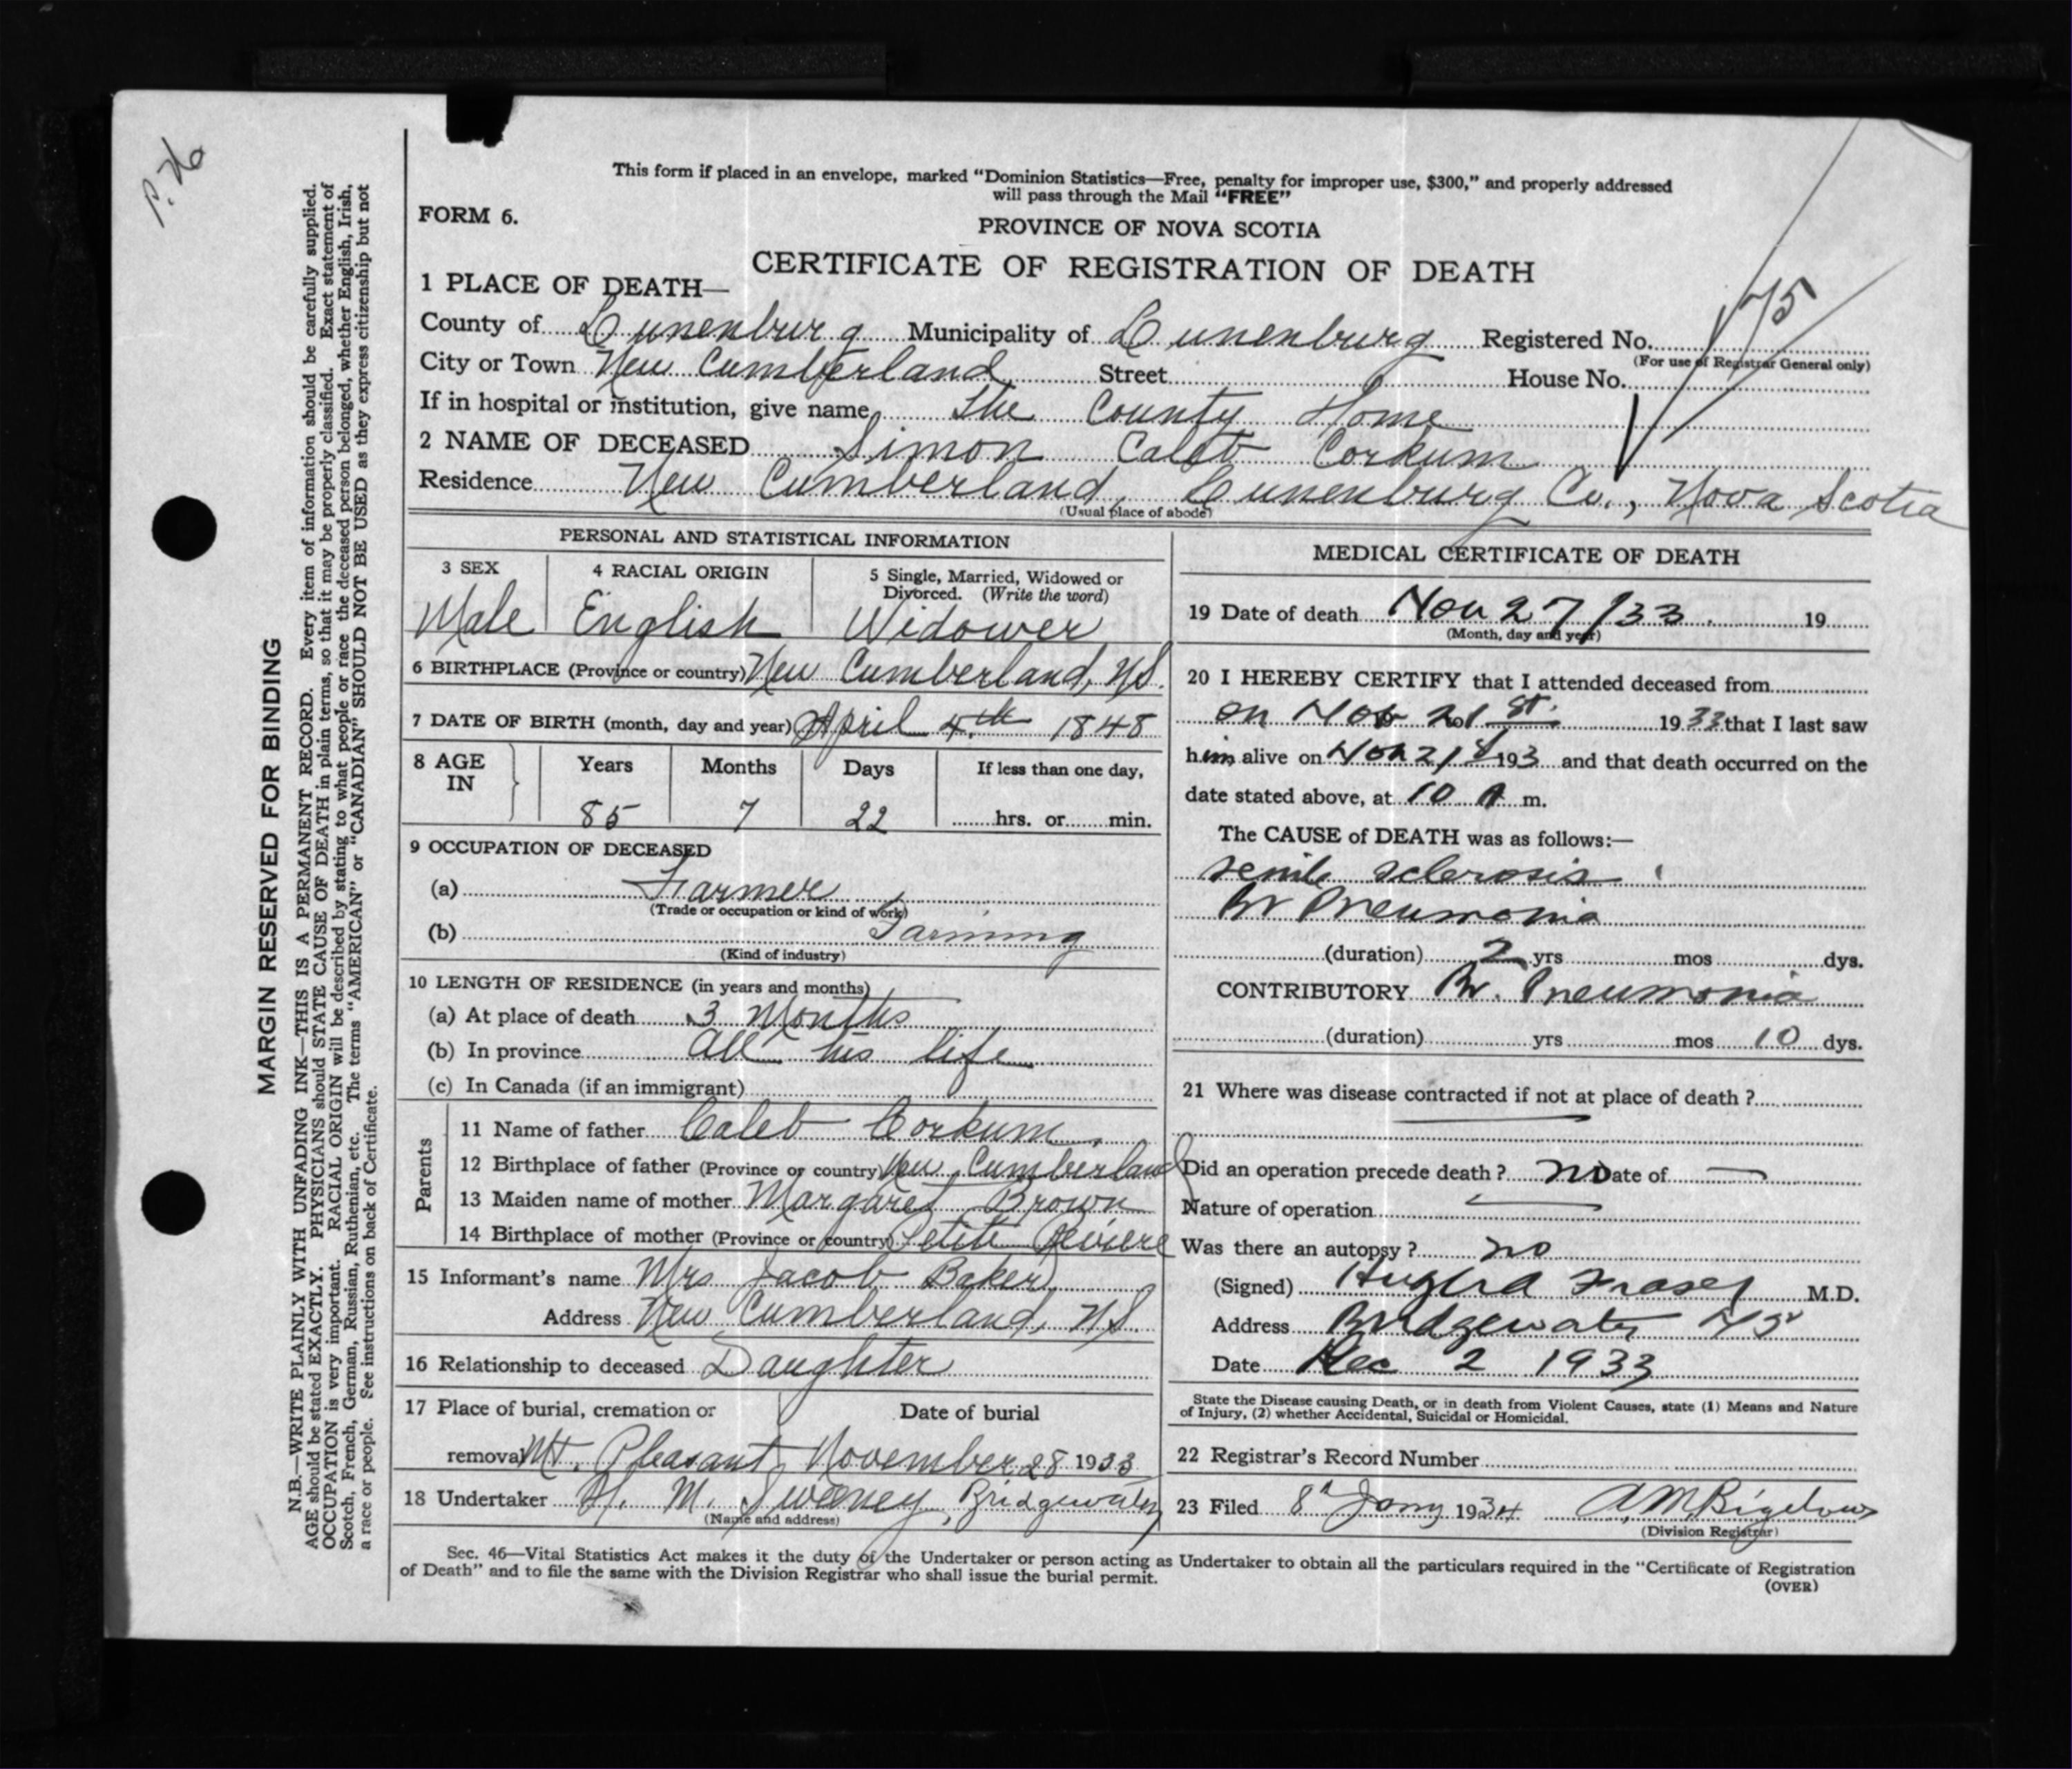 P. 76
MARGIN RESERVED FOR BINDING
N.B.—WRITE PLAINLY WITH UNFADING INK—THIS IS A PERMANENT RECORD. Every item of information should be carefully supplied.
AGE should be stated EXACTLY. PHYSICIANS should STATE CAUSE OF DEATH in plain terms, so that it may be properly classified. Exact statement of
OCCUPATION is very important. RACIAL ORIGIN will be described by stating to what people or race the deceased person belonged, whether English, Irish,
Scotch, French, German, Russian, Ruthenian, etc. The terms "AMERICAN" or "CANADIAN" SHOULD NOT BE USED as they express citizenship but not
a race or people. See instructions on back of Certificate.
This form if placed in an envelope, marked "Dominion Statistics—Free, penalty for improper use, $300," and properly addressed
will pass through the Mail "FREE"
FORM 6.
PROVINCE OF NOVA SCOTIA
CERTIFICATE OF REGISTRATION OF DEATH
1 PLACE OF DEATH—
County of Lunenburg Municipality of Lunenburg Registered No. 175
(For use of Registrar General only)
City or Town New Cumberland Street House No.
If in hospital or institution, give name The County Home
2 NAME OF DECEASED Simon Caleb Corkum
Residence New Cumberland, Lunenburg Co., Nova Scotia
(Usual place of abode)
PERSONAL AND STATISTICAL INFORMATION
3 SEX 4 RACIAL ORIGIN 5 Single, Married, Widowed or
Divorced. (Write the word)
Male English Widower
6 BIRTHPLACE (Province or country) New Cumberland, N.S.
7 DATE OF BIRTH (month, day and year) April 4th 1848
8 AGE IN Years Months Days If less than one day,
85 7 22 hrs. or min.
9 OCCUPATION OF DECEASED
(a) Farmer
(Trade or occupation or kind of work)
(b) Farming
(Kind of industry)
10 LENGTH OF RESIDENCE (in years and months)
(a) At place of death 3 Months
(b) In province all his life
(c) In Canada (if an immigrant)
Parents
11 Name of father Caleb Corkum
12 Birthplace of father (Province or country) New Cumberland
13 Maiden name of mother Margaret Brown
14 Birthplace of mother (Province or country) Petite Reviere
15 Informant's name Mrs Jacob Baker
Address New Cumberland, N.S.
16 Relationship to deceased Daughter
17 Place of burial, cremation or Date of burial
removal Mt. Pleasant November 28 1933
18 Undertaker H. M. Sweeney, Bridgewater
(Name and address)
MEDICAL CERTIFICATE OF DEATH
19 Date of death Nov 27/33 19
(Month, day and year)
20 I HEREBY CERTIFY that I attended deceased from
on Nov 21st 1933 that I last saw
him alive on Nov 21st 193 and that death occurred on the
date stated above, at 10 A m.
The CAUSE of DEATH was as follows:—
senile sclerosis
Br Pneumonia
(duration) 2 yrs mos dys.
CONTRIBUTORY Br. Pneumonia
(duration) yrs mos 10 dys.
21 Where was disease contracted if not at place of death ?
Did an operation precede death ? no Date of —
Nature of operation —
Was there an autopsy ? no
(Signed) Fraser M.D.
Address Bridgewater NS
Date Dec 2 1933
State the Disease causing Death, or in death from Violent Causes, state (1) Means and Nature
of Injury, (2) whether Accidental, Suicidal or Homicidal.
22 Registrar's Record Number
23 Filed 8th Jany 1934 A.M. Bigelow
(Division Registrar)
Sec. 46—Vital Statistics Act makes it the duty of the Undertaker or person acting as Undertaker to obtain all the particulars required in the "Certificate of Registration
of Death" and to file the same with the Division Registrar who shall issue the burial permit.
(OVER)